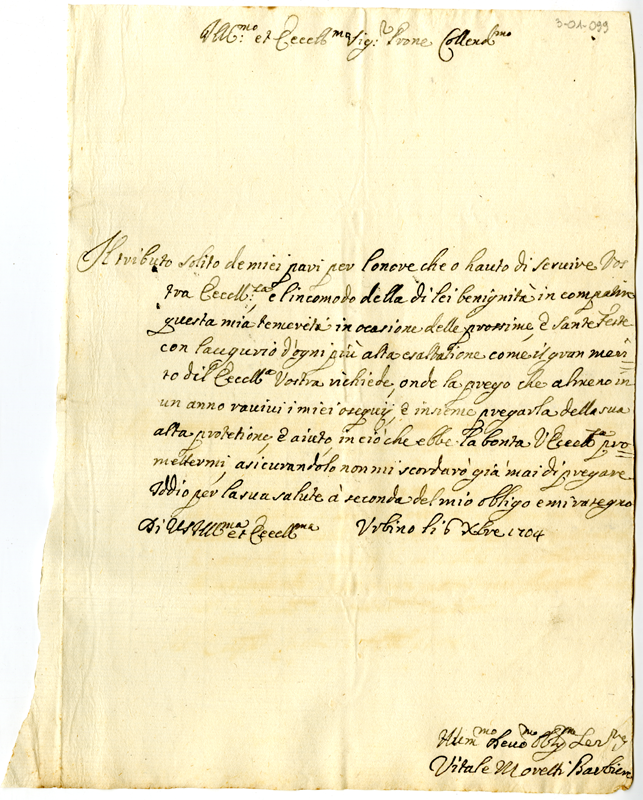 3-01-099
Ill:mo et Eccell:ma Sig:r Prone Collend:mo
Il tributo solito de miei pari per l'onore che o hauto di seruire Vos
tra Eccell:za e l'incomodo della di lei benignità in compatire
questa mia temerità in ocasione delle prossime, è sante feste
con l'augurio d'ogni più alta esaltatione come il gran meri
to di Eccell:a Vostra richiede, onde la prego che almeno in
un anno ravivi i miei osequij, è insieme pregarla della sua
alta protetione, è aiuto in ciò che ebbe la bontà V Eccell:za pro=
mettermi, asicurandolo non mi scordarò già mai di pregare
Iddio per la sua salute à seconda del mio obligo e mi rasegno
Di VS Ill:ma et Eccell:ma Vrbino li 6 Xbre 1704
Hum:mo Deuo:mo Obbl:mo Ser:re
Vitale Morelli Barbiere